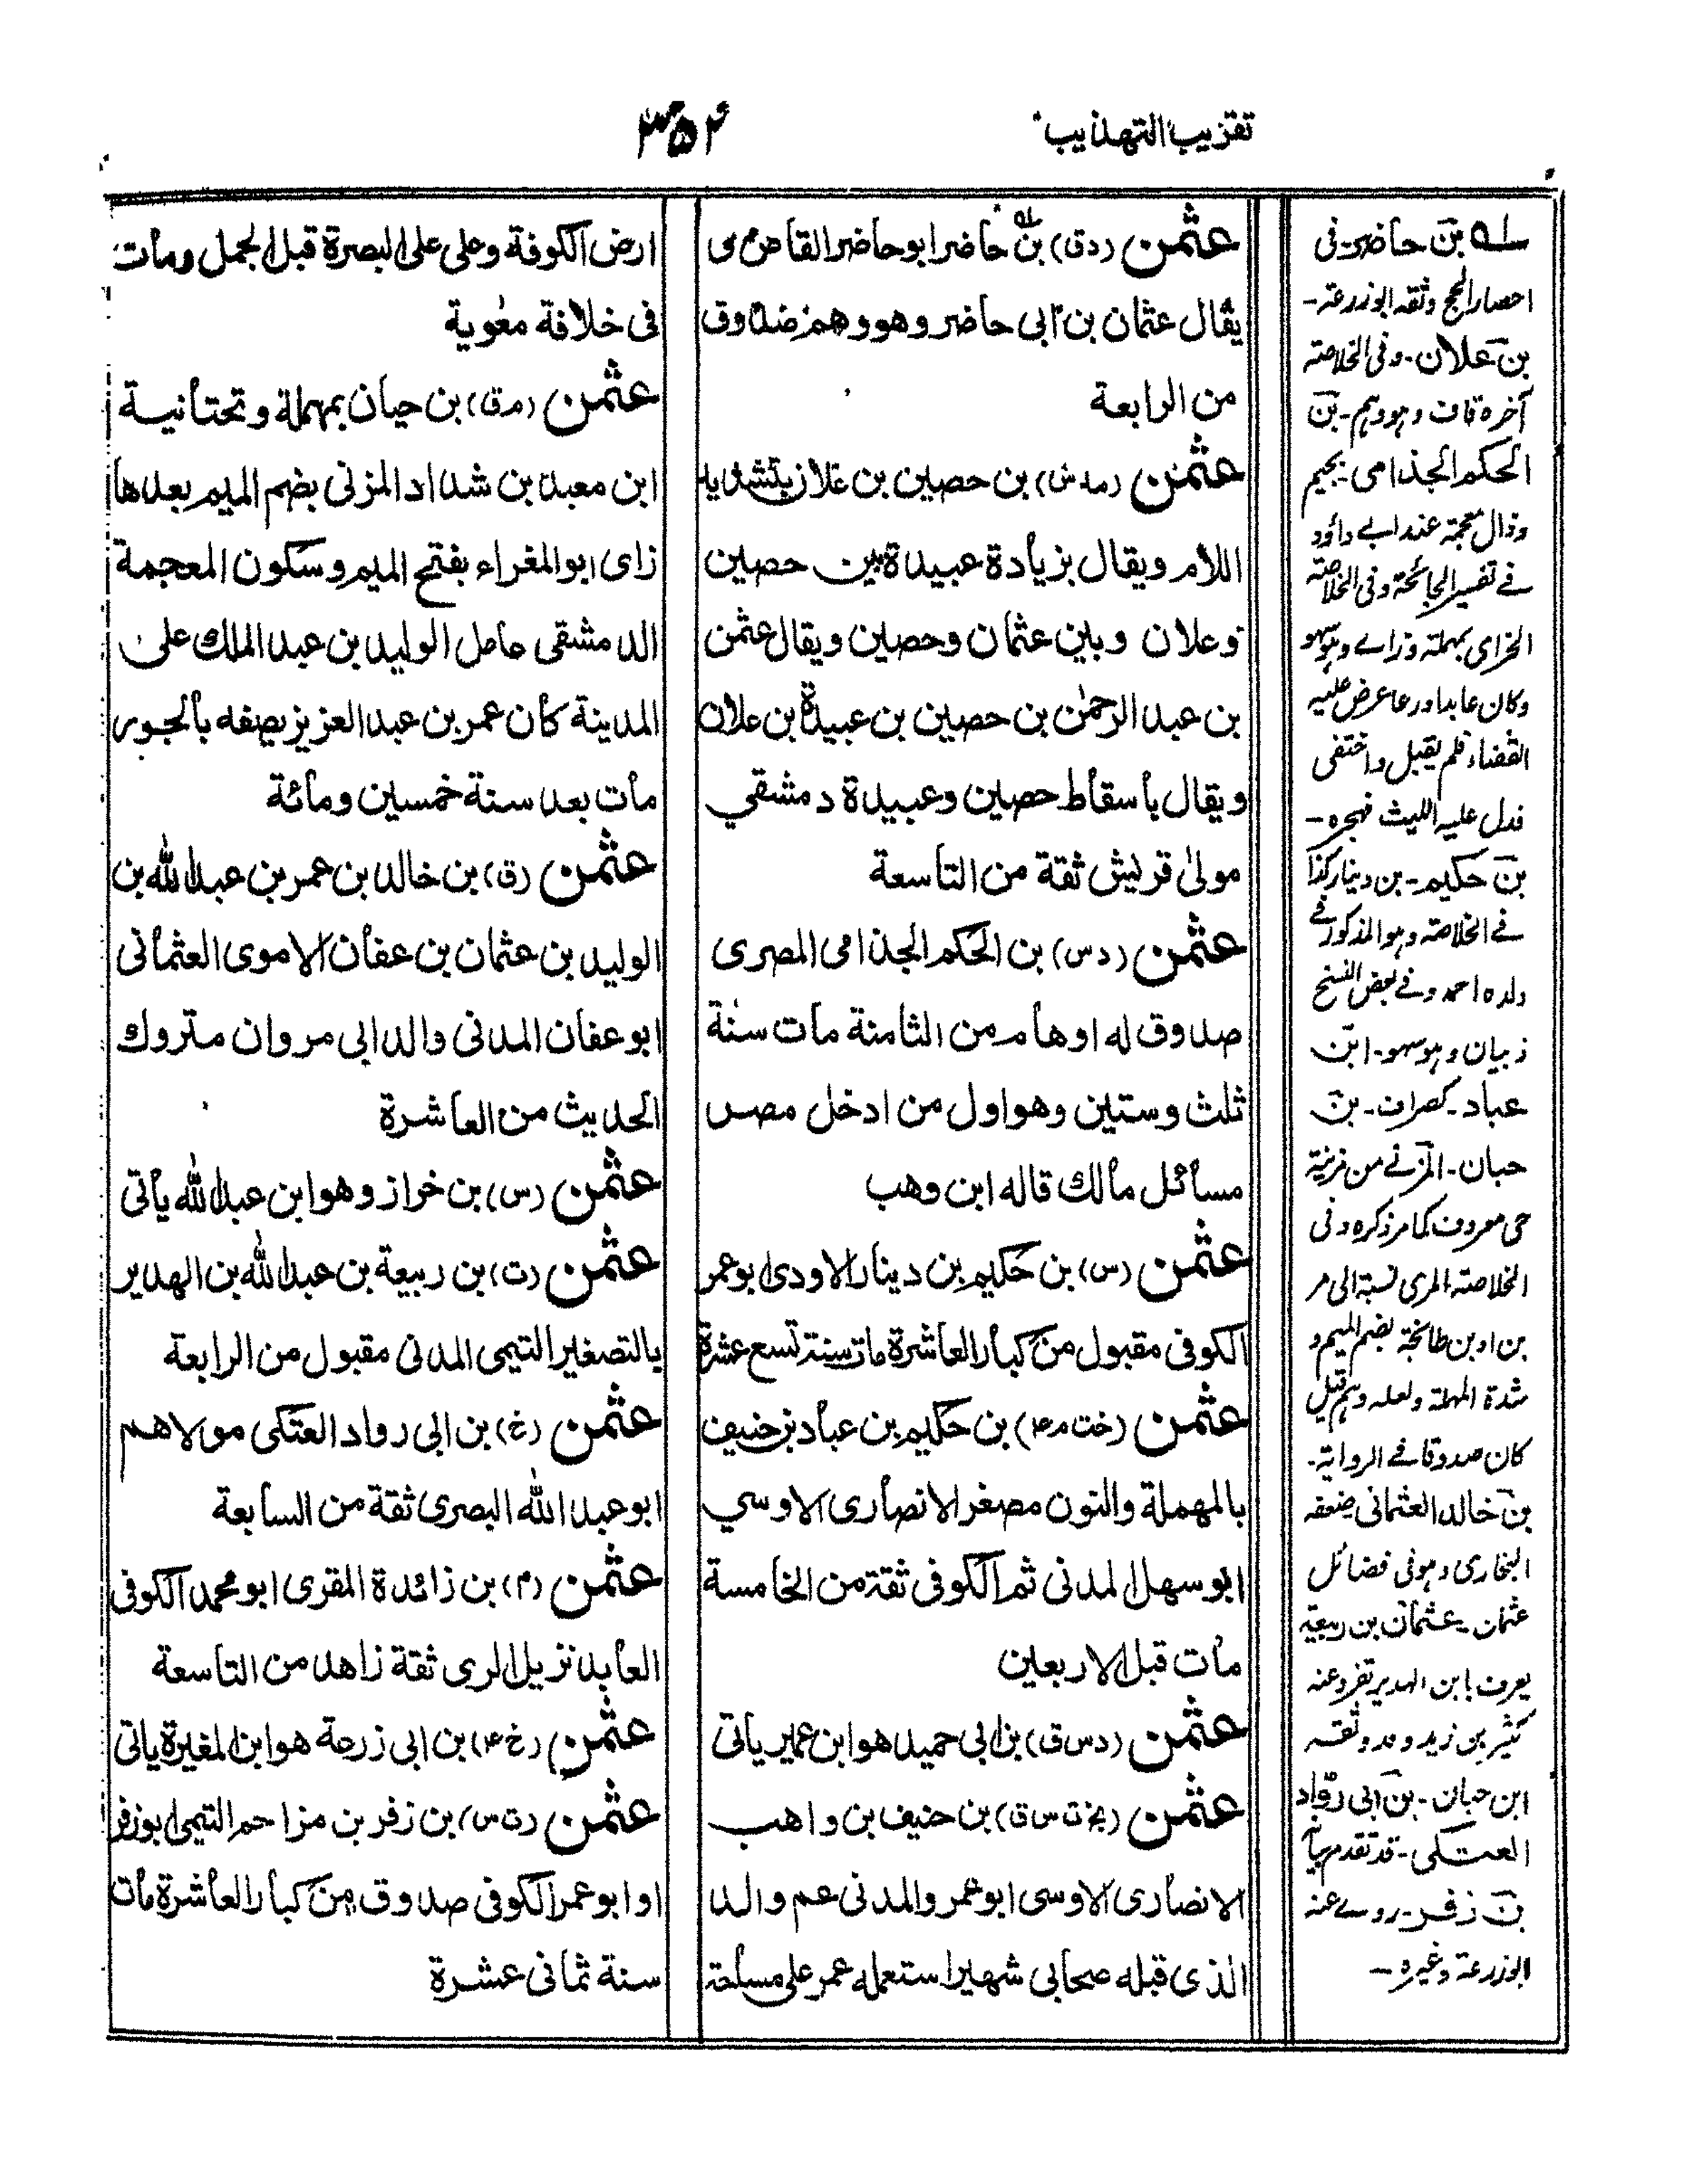 تقريب التهذيب
٣٥٢
عثمن (دق) بن حاضر ابو حاضر القاص
يقال عثمان بن ابى حاضر وهو وهم صدوق
من الرابعة
عثمن (مدس) بن حصين بن علان بتشديد
اللام ويقال بزيادة عبيدة بين حصين
وعلان وبين عثمان وحصين ويقال عثمن
بن عبد الرحمٰن بن حصين بن عبيدة بن علان
ويقال باسقاط حصين وعبيدة دمشقي
مولىٰ قريش ثقة من التاسعة
عثمن (دس) بن الحكم الجذامى المصرى
صدوق له اوهام من الثامنة مات سنة
ثلث وستين وهو اول من ادخل مصر
مسائل مالك قاله ابن وهب
عثمن (س) بن حكيم بن دينار الاودى ابو عمر
الكوفى مقبول من كبار العاشرة مات سنة تسع عشرة
عثمن (خت م ٤) بن حكيم بن عباد بن حنيف
بالمهملة والنون مصغر الانصارى الاوسي
ابو سهل المدنى ثم الكوفى ثقة من الخامسة
مات قبل الاربعين
عثمن (دس ق) بن ابى حميد هو ابن عمير ياتى
عثمن (بخ ت س ق) بن حنيف بن واهب
الانصارى الاوسى ابو عمرو المدنى عم والد
الذى قبله صحابى شهير استعمله عمر على مساحة
ارض الكوفة وعلى على البصرة قبل الجمل ومات
فى خلافة معٰوية
عثمن (م ق) بن حيان بمهملة وتحتانية
ابن معبد بن شداد المزنى بضم الميم بعدها
زاى ابو المغراء بفتح الميم وسكون المعجمة
الدمشقى عامل الوليد بن عبد الملك على
المدينة كان عمر بن عبد العزيز يصفه بالجور
مات بعد سنة خمسين ومائة
عثمن (ق) بن خالد بن عمر بن عبد الله بن
الوليد بن عثمان بن عفان الاموى العثمانى
ابو عفان المدنى والد ابى مروان متروك
الحديث من العاشرة
عثمن (س) بن خراز وهو ابن عبد الله ياتى
عثمن (ت) بن ربيعة بن عبد الله بن الهدير
بالتصغير التيمى المدنى مقبول من الرابعة
عثمن (خ) بن ابى رواد العتكى مولاهم
ابو عبد الله البصرى ثقة من السابعة
عثمن (م) بن زائدة المقرى ابو محمد الكوفى
العابد نزيل الرى ثقة زاهد من التاسعة
عثمن (خ ٤) بن ابى زرعة هو ابن المغيرة ياتى
عثمن (ت س) بن زفر بن مزاحم التيمى ابو زفر
او ابو عمر الكوفى صدوق من كبار العاشرة مات
سنة ثمانى عشرة
له بن حاضر - فى
احصار الحج وثقه ابو زرعة -
بن علان - وفى الخلاصة
آخره قاف وهو وهم - بن
الحكم الجذامى - بجيم
وذال معجمة عند ابى داؤد
فى تفسير الجائحة وفى الخلاصة
الخزاى بمهملة وزاے وهو سهو
وكان عابدا ورعا عرض عليه
القضاء فلم يقبل واختفى
فدل عليه الليث فهجره -
بن حكيم - بن دينار كذا
فى الخلاصة وهو المذكور فى
ولده احمد وفى بعض النسخ
ذبيان وهو سهو - ابن
عباد - كصراف - بن
حبان - المزنے من مزينة
حى معروف كما مر ذكره وفى
الخلاصة المرى نسبة الى مر
بن اد بن طابخة بضم الميم و
شدة المهملة ولعله وهم قيل
كان صدوقا فى الرواية -
بن خالد العثمانى ضعفه
البخارى وهو فى فضائل
عثمان - عثمان بن ربيعة
يعرف بابن الهدير تفرد عنه
كثير بن زيد وقد وثقه
ابن حبان - بن ابى روّاد
العتكى - قد تقدم
بن زفر - روے عنه
ابو زرعة وغيره -